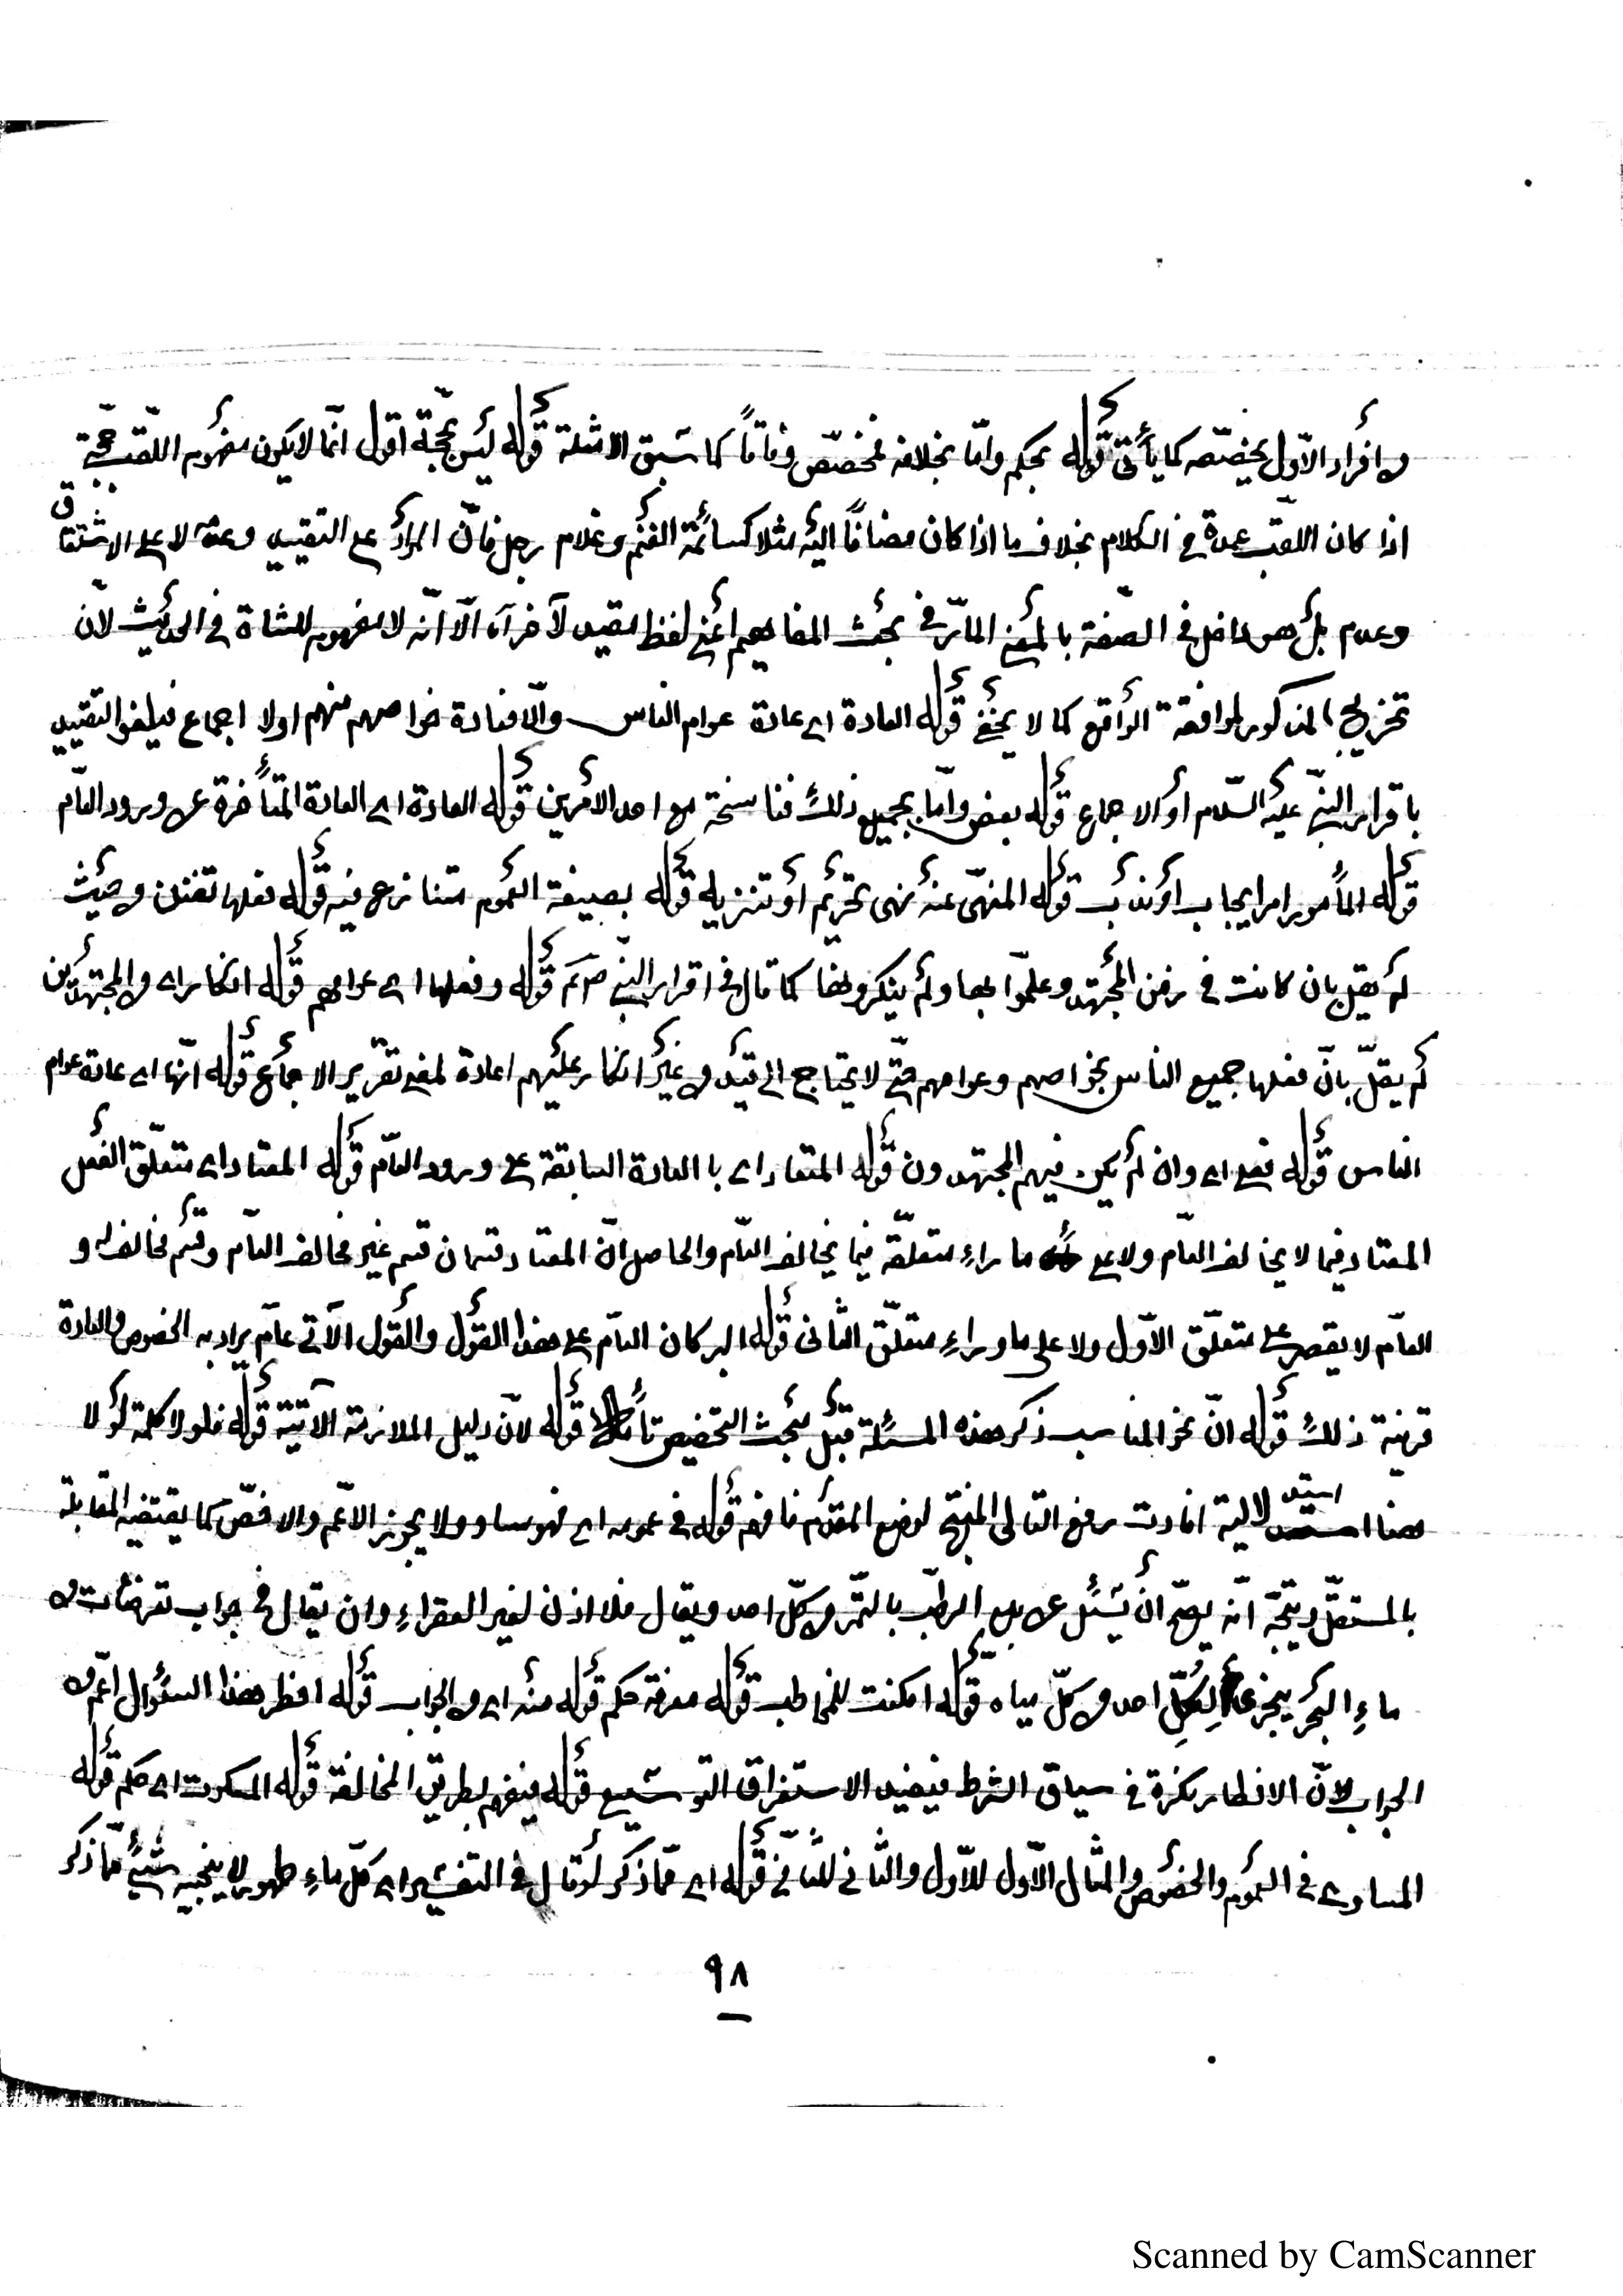 وافراد الاوّل يخصّصه كما يأتى قوله بحكم وامّا بخلافه فمخصّص وفاقاً كما سبق الامثلة قوله ليس بحجّة اقول انّما لا يكون مفهوم اللقب حجّة
اذا كان اللقب عمدة في الكلام بخلاف ما اذا كان مضافاً اليه مثلا كسائمة الغنم وغلام رجل فانّ المراد على التقييد وعدمه لا على الاشتقاق
وعدم بل هو داخل في الصّفة بالمعنى المارّ في بحث المفاهيم اعنى لفظ مقيد لآخر آه الّا انّه لا مفهوم للشاة في الحديث لانّ
تخريج المذكور لموافقة الواقع كما لا يخفى قوله العادة اى عادة عوام الناس والّا فعادة خواصهم منهم اولا اجماع فيلغو التقييد
باقرار النبيّ عليه السّلام أو الاجماع قوله بعض وامّا بجميع ذلك فناسخة مع احد الأمرين قوله العادة اى العادة المتأخّرة عن ورود العامّ
قوله المأمور امر ايجاب أو ندب قوله المنهىّ عنه نهى تحريم أو تنزيه قوله بصيغة العموم متنازع فيه قوله فعلها تفنن وحيث
لم يقل بان كانت في زمن المجتهد وعلموا بها ولم ينكروها كما قال في اقرار النبيّ صلعم قوله وفعلها اى عوامهم قوله انكار اى والمجتهدين
لم يقل بانّ فعلها جميع الناس بخواصهم وعوامهم حتّى لا يحتاج الى قيد من غير انكار عليهم اعادة لمعنى تقرير الاجماع قوله انّها اى عادة عوام
الناس قوله فعل اى وان لم يكن فيهم المجتهدون قوله المعتاد اى باالعادة السابقة على ورود العامّ قوله المعتاد اى متعلّق الفعل
المعتاد فيما لا يخالف العامّ ولا على ما راءِ متعلّقه فيما يخالف العامّ والحاصل انّ المعتاد قسمان قسم غير مخالف العامّ وقسم مخالف له و
العامّ لا يقصر على متعلّق الاوّل ولا على ما وراءِ متعلّق الثانى قوله البر كان العامّ على هذا القول والقول الآتى عامّ يراد به الخصوص والعادة
قرينة ذلك قوله انّ نحو المناسب ذكر هذه المسئلة قبل بحث التخصيص تأمّل قوله لانّ دليل الملازمة الآتية قوله فلو لا كلمة لو لا
هنا استدلالية افادت رفع التالى المنتج لوضع المقدّم فافهم قوله في عمومه اى فهو مساو ولا يجوز الاعّم والاخصّ كما يقتضيه المقابلة
بالمستقلّ ويتجّه انّه يصحّ انّ يسئل عن بيع الرطب بالتّمر وكلّ احد ويقال فلا اذن لغير الفقراءِ وان يقال في جواب توضأت من
ماءِ البحر يجزى لكلّ احد من كلّ مياه قوله امكنت للمخاطب قوله معرفة حكم قوله منه اى من الجواب قوله افطر هذا السئوال اعّم من
الجواب لانّ الافطار نكرة في سياق الشرط فيفيد الاستغراق قوله فيفهم بطريق المخالفة قوله المسكوت اى حكم قوله
المساوى في العموم والخصوص والمثال الاوّل للاوّل والثانى للثانى قوله اى ممّا ذكر لو قال في التفسير اى كلّ ماءِ طهور لا ينجسه شيئ ممّا ذكر
٩٨
Scanned by CamScanner